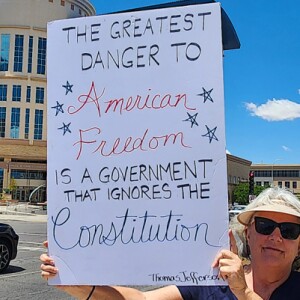 THE GREATEST
DANGER TO
American
Freedom
IS A GOVERNMENT
THAT IGNORES THE
Constitution
Thomas Jefferson